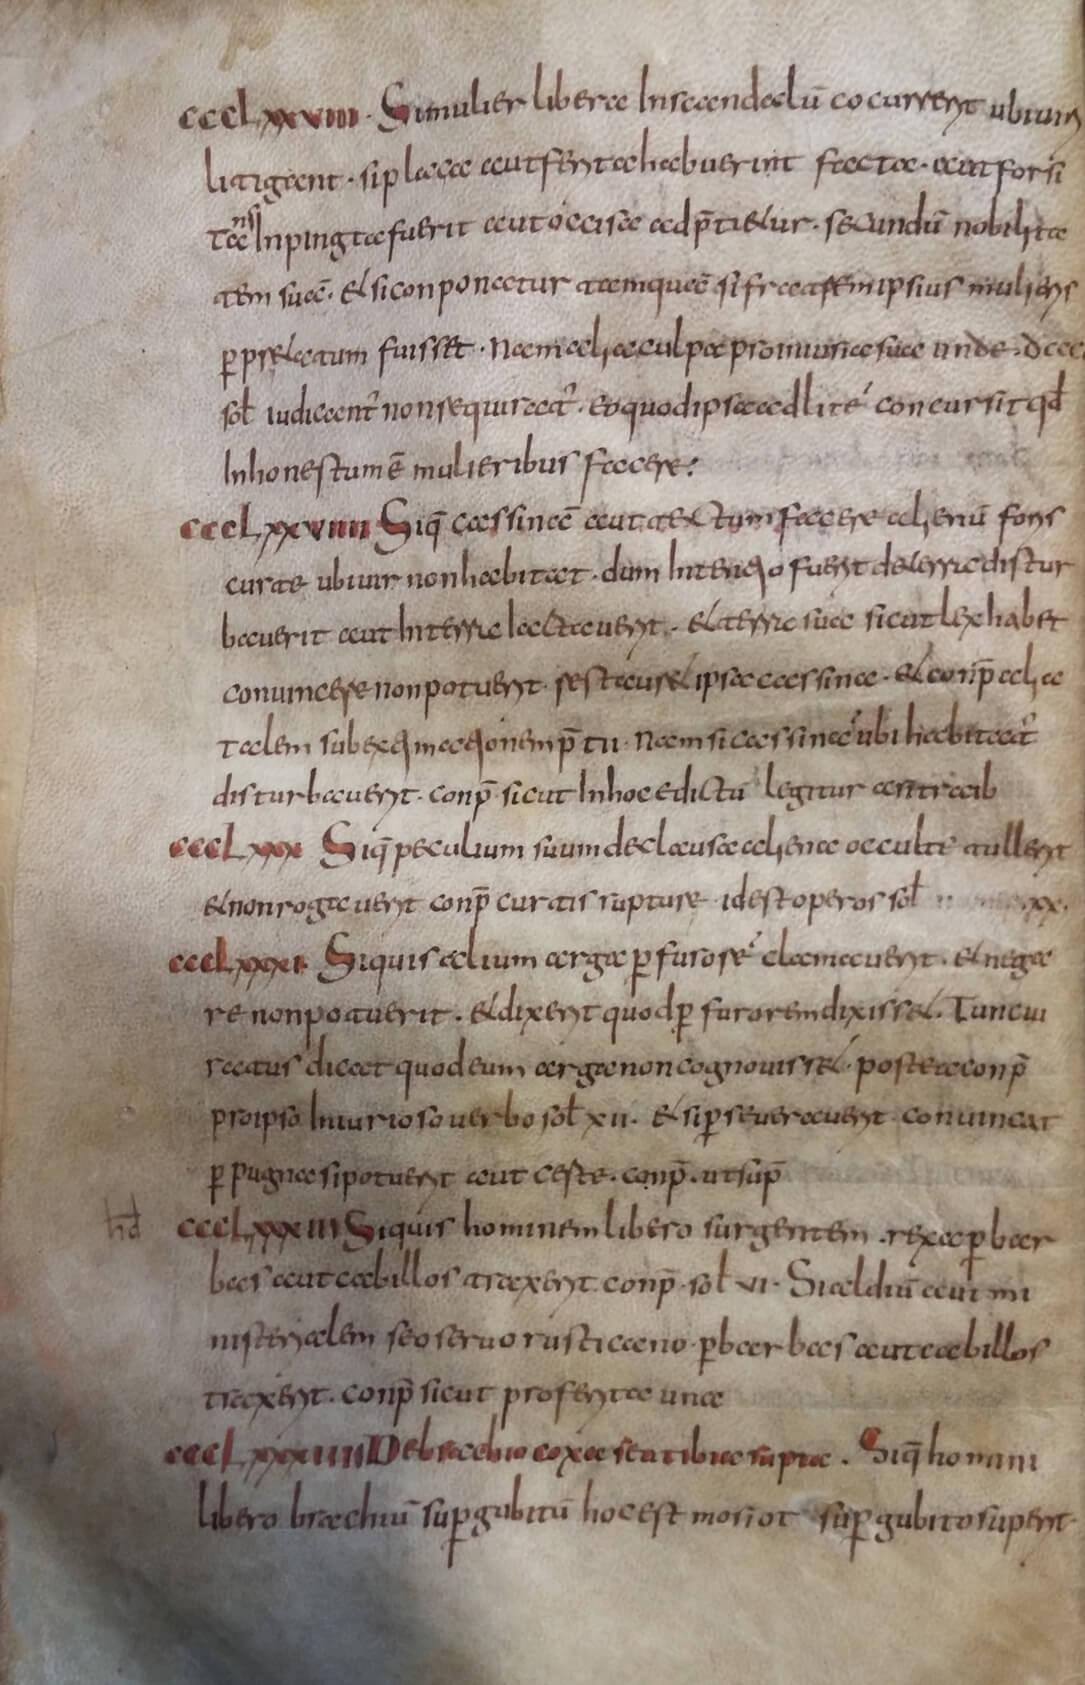 cccLxxviii. Simulier libera Inscandalū cocurrerit ubiuiri
litigant. siplaga autferita habuerint facta. autforsi
tansi Inpingta fuerit autoccisa adp̄tietur. secundū nobilita
tem suā. et siconponatur tamquā sifratrem ipsius mulieris
p̱pretatum fuisset. Namaliaculpa promunna sua unde. dccc
sol iudicant nonsequiratr. eoquodipsa adlitē concursit qd
Inhonestum ē mulieribus facere:
cccLxxviiii Siq̄ cassinā aut tectum facere alienū foris
curte ubiuir nonhabitat. dum Intentio fuerit deterra distur
bauerit aut Interra iactauerit. et terra sua sicut lex habet
conuincere nonpotuerit. restauret ipsa cassina. et conp̄ alia
talem subextimationem p̄tii. Nam si cassina ubi habitatr
disturbauerit. conp̄ sicut Inhoc edictū legitur antraib
cccLxxx Siq̄ peculium suum declausa aliena occulte tullerit
et nonrogtauerit conp̄ curtis rupture idest operos sol
cccLxxxi Siquis alium arga p̱ furorē clamauerit. et nega
re nonpotuerit. et dixerit quod p̱ furorem dixisset. Tunc iu
ratus dicat quod eum arga non cognouisset. postea conp̄
proipso Iniurioso uerbo sol xii. et sip̱seuerauerit conuincat
p̱ pugna sipotuerit aut certe. conp̄. ut sup̄
cccLxxxiii Siquis hominem libero surgentem. rexa p̱ bar
bas aut cabillos traxerit conp̄. sol vi. Si aldiū aut mi
nisterialem seo seruo rusticano. p̱ barbas aut cabillos
traxerit. conp̄ sicut proferita una
cccLxxxiiii De brachio coxa seu tibia rupta. Siq̄ homini
libero brachiū sup̱ gubitū hoc est moriot sup̱ gubito ruperit.